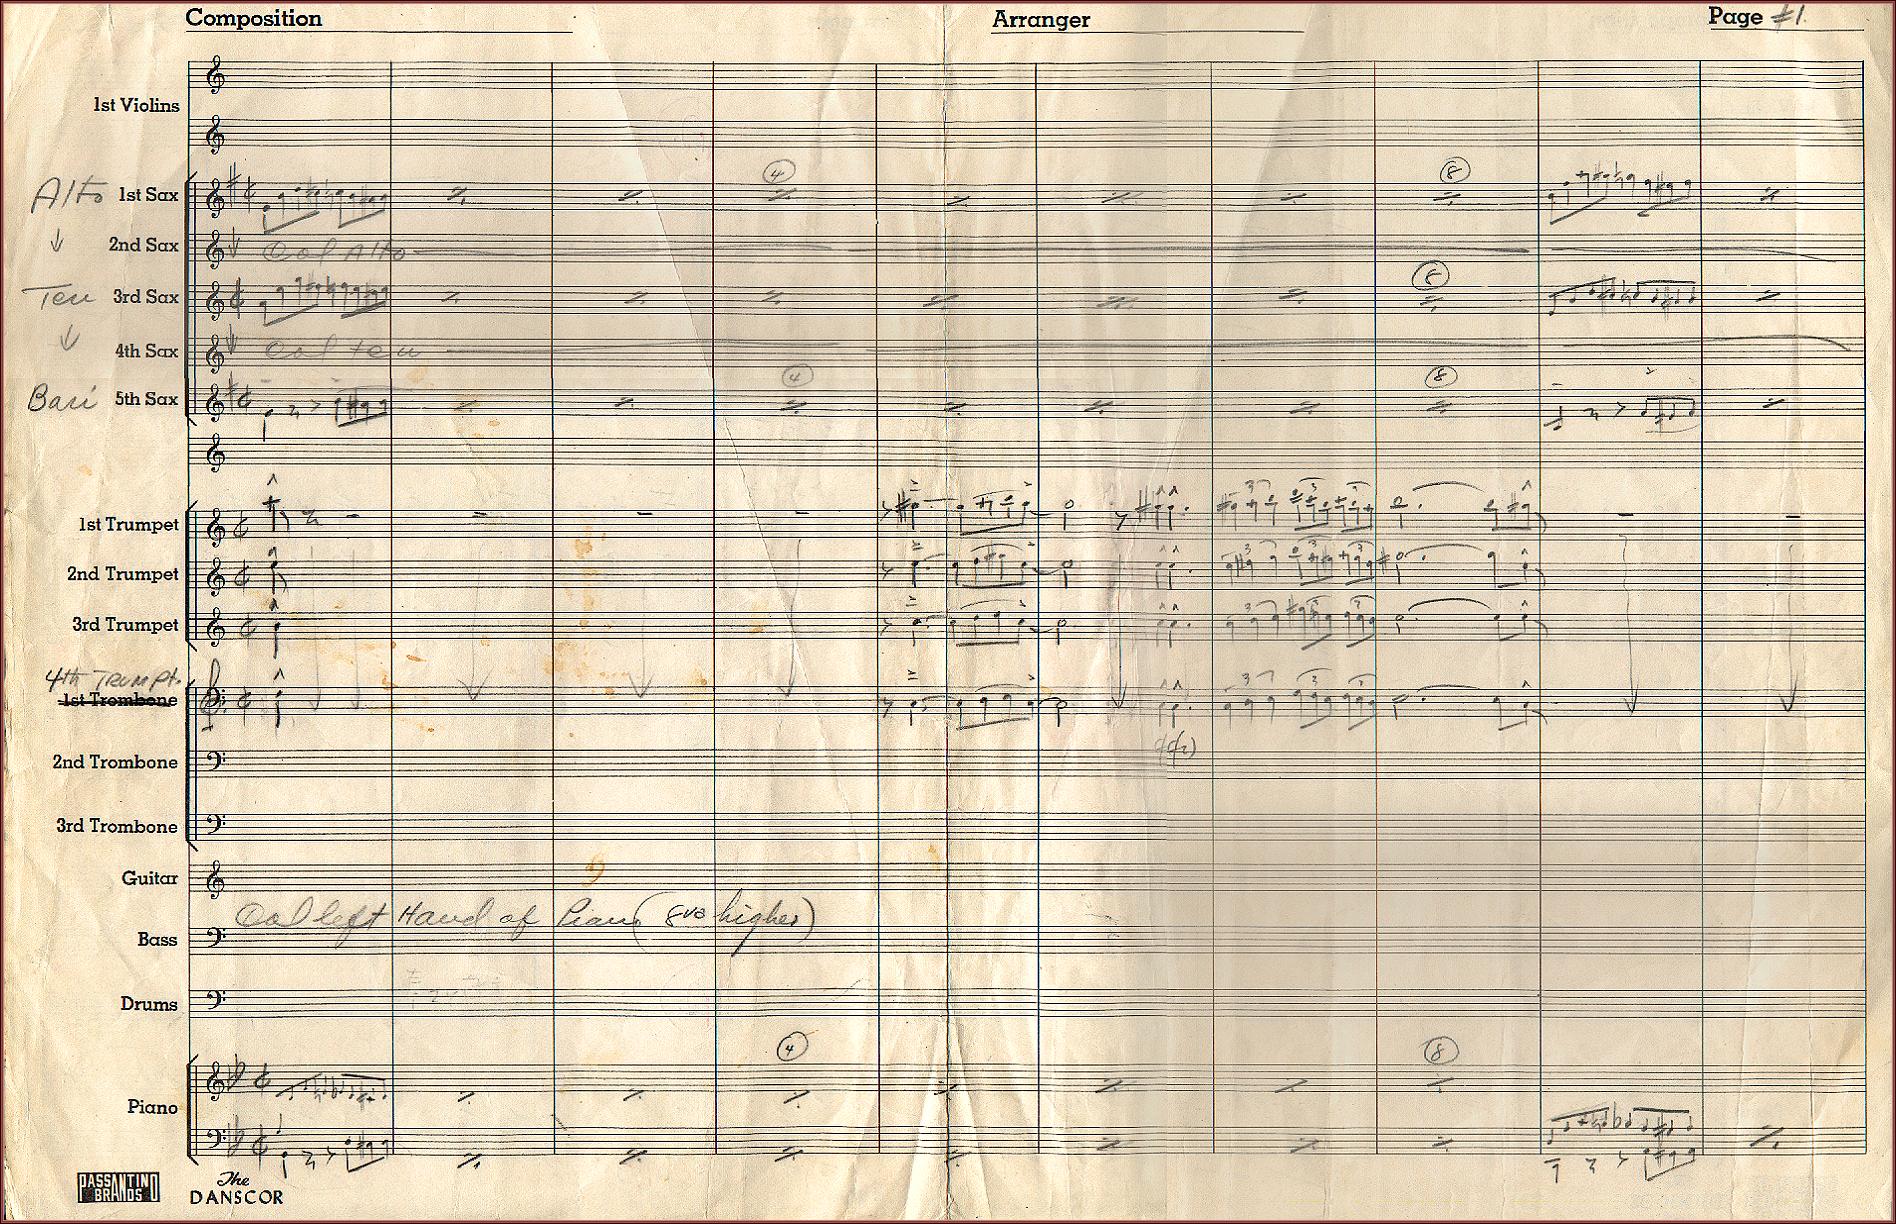 Composition Arranger Page #1
1st Violins
Alto 1st Sax
④ ⑧
2nd Sax Col Alto
Ten 3rd Sax
⑧
4th Sax Col Ten
Bari 5th Sax
④ ⑧
1st Trumpet
3 3 3
2nd Trumpet
3 3 3
3rd Trumpet
3 3 3
4th Trumpt.
1st Trombone
3 3 3
2nd Trombone
3rd Trombone
Guitar
Col left Hand of Piano (8va higher)
Bass
Drums
④ ⑧
Piano
PASSANTINO
BRANDS
The
DANSCOR